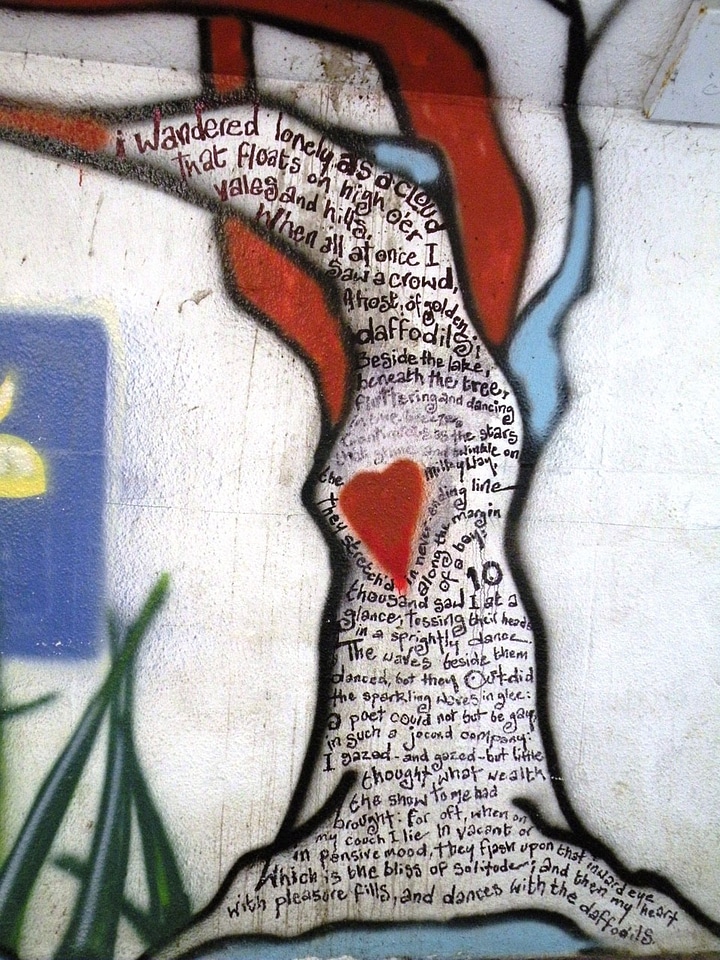 i wandered lonely as a cloud
that floats on high o'er
vales and hills,
When all at once I
saw a crowd,
A host, of golden
daffodils;
Beside the lake,
beneath the trees,
fluttering and dancing
in the breeze.
Continuous as the stars
that shine and twinkle on
the milky way,
They stretch'd in never-ending line
along the margin
of a bay:
10
thousand saw I at a
glance, tossing their heads
in a sprightly dance.
The waves beside them
danced, but they Out-did
the sparkling waves in glee:
a poet could not but be gay,
in such a jocund company:
I gazed-and gazed-but little
thought what wealth
the show to me had
brought: for oft, when on
my couch I lie in vacant or
in pensive mood, they flash upon that inward eye
Which is the bliss of solitude; and then my heart
with pleasure fills, and dances with the daffodils.